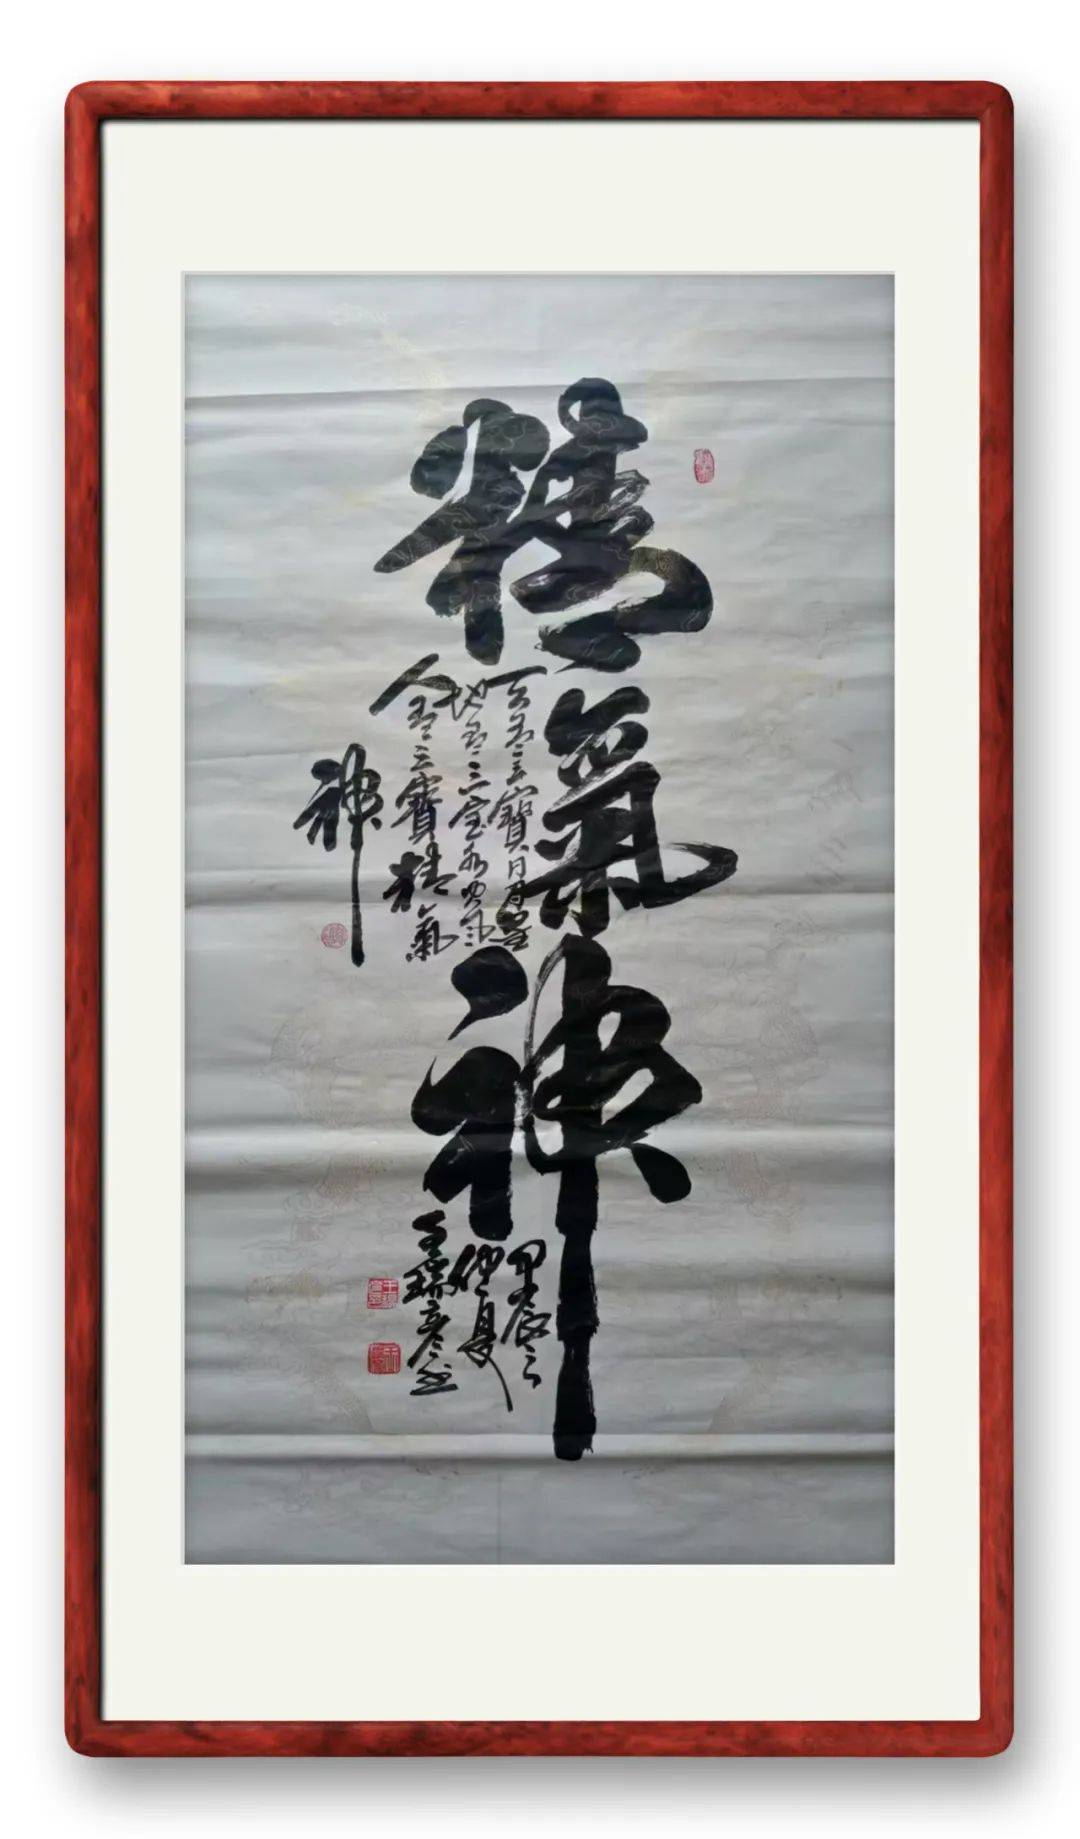 精氣神
天有三寶日月星
地有三宝水火风
人有三寶精氣
神
甲辰之
仲夏
王瑞彦书